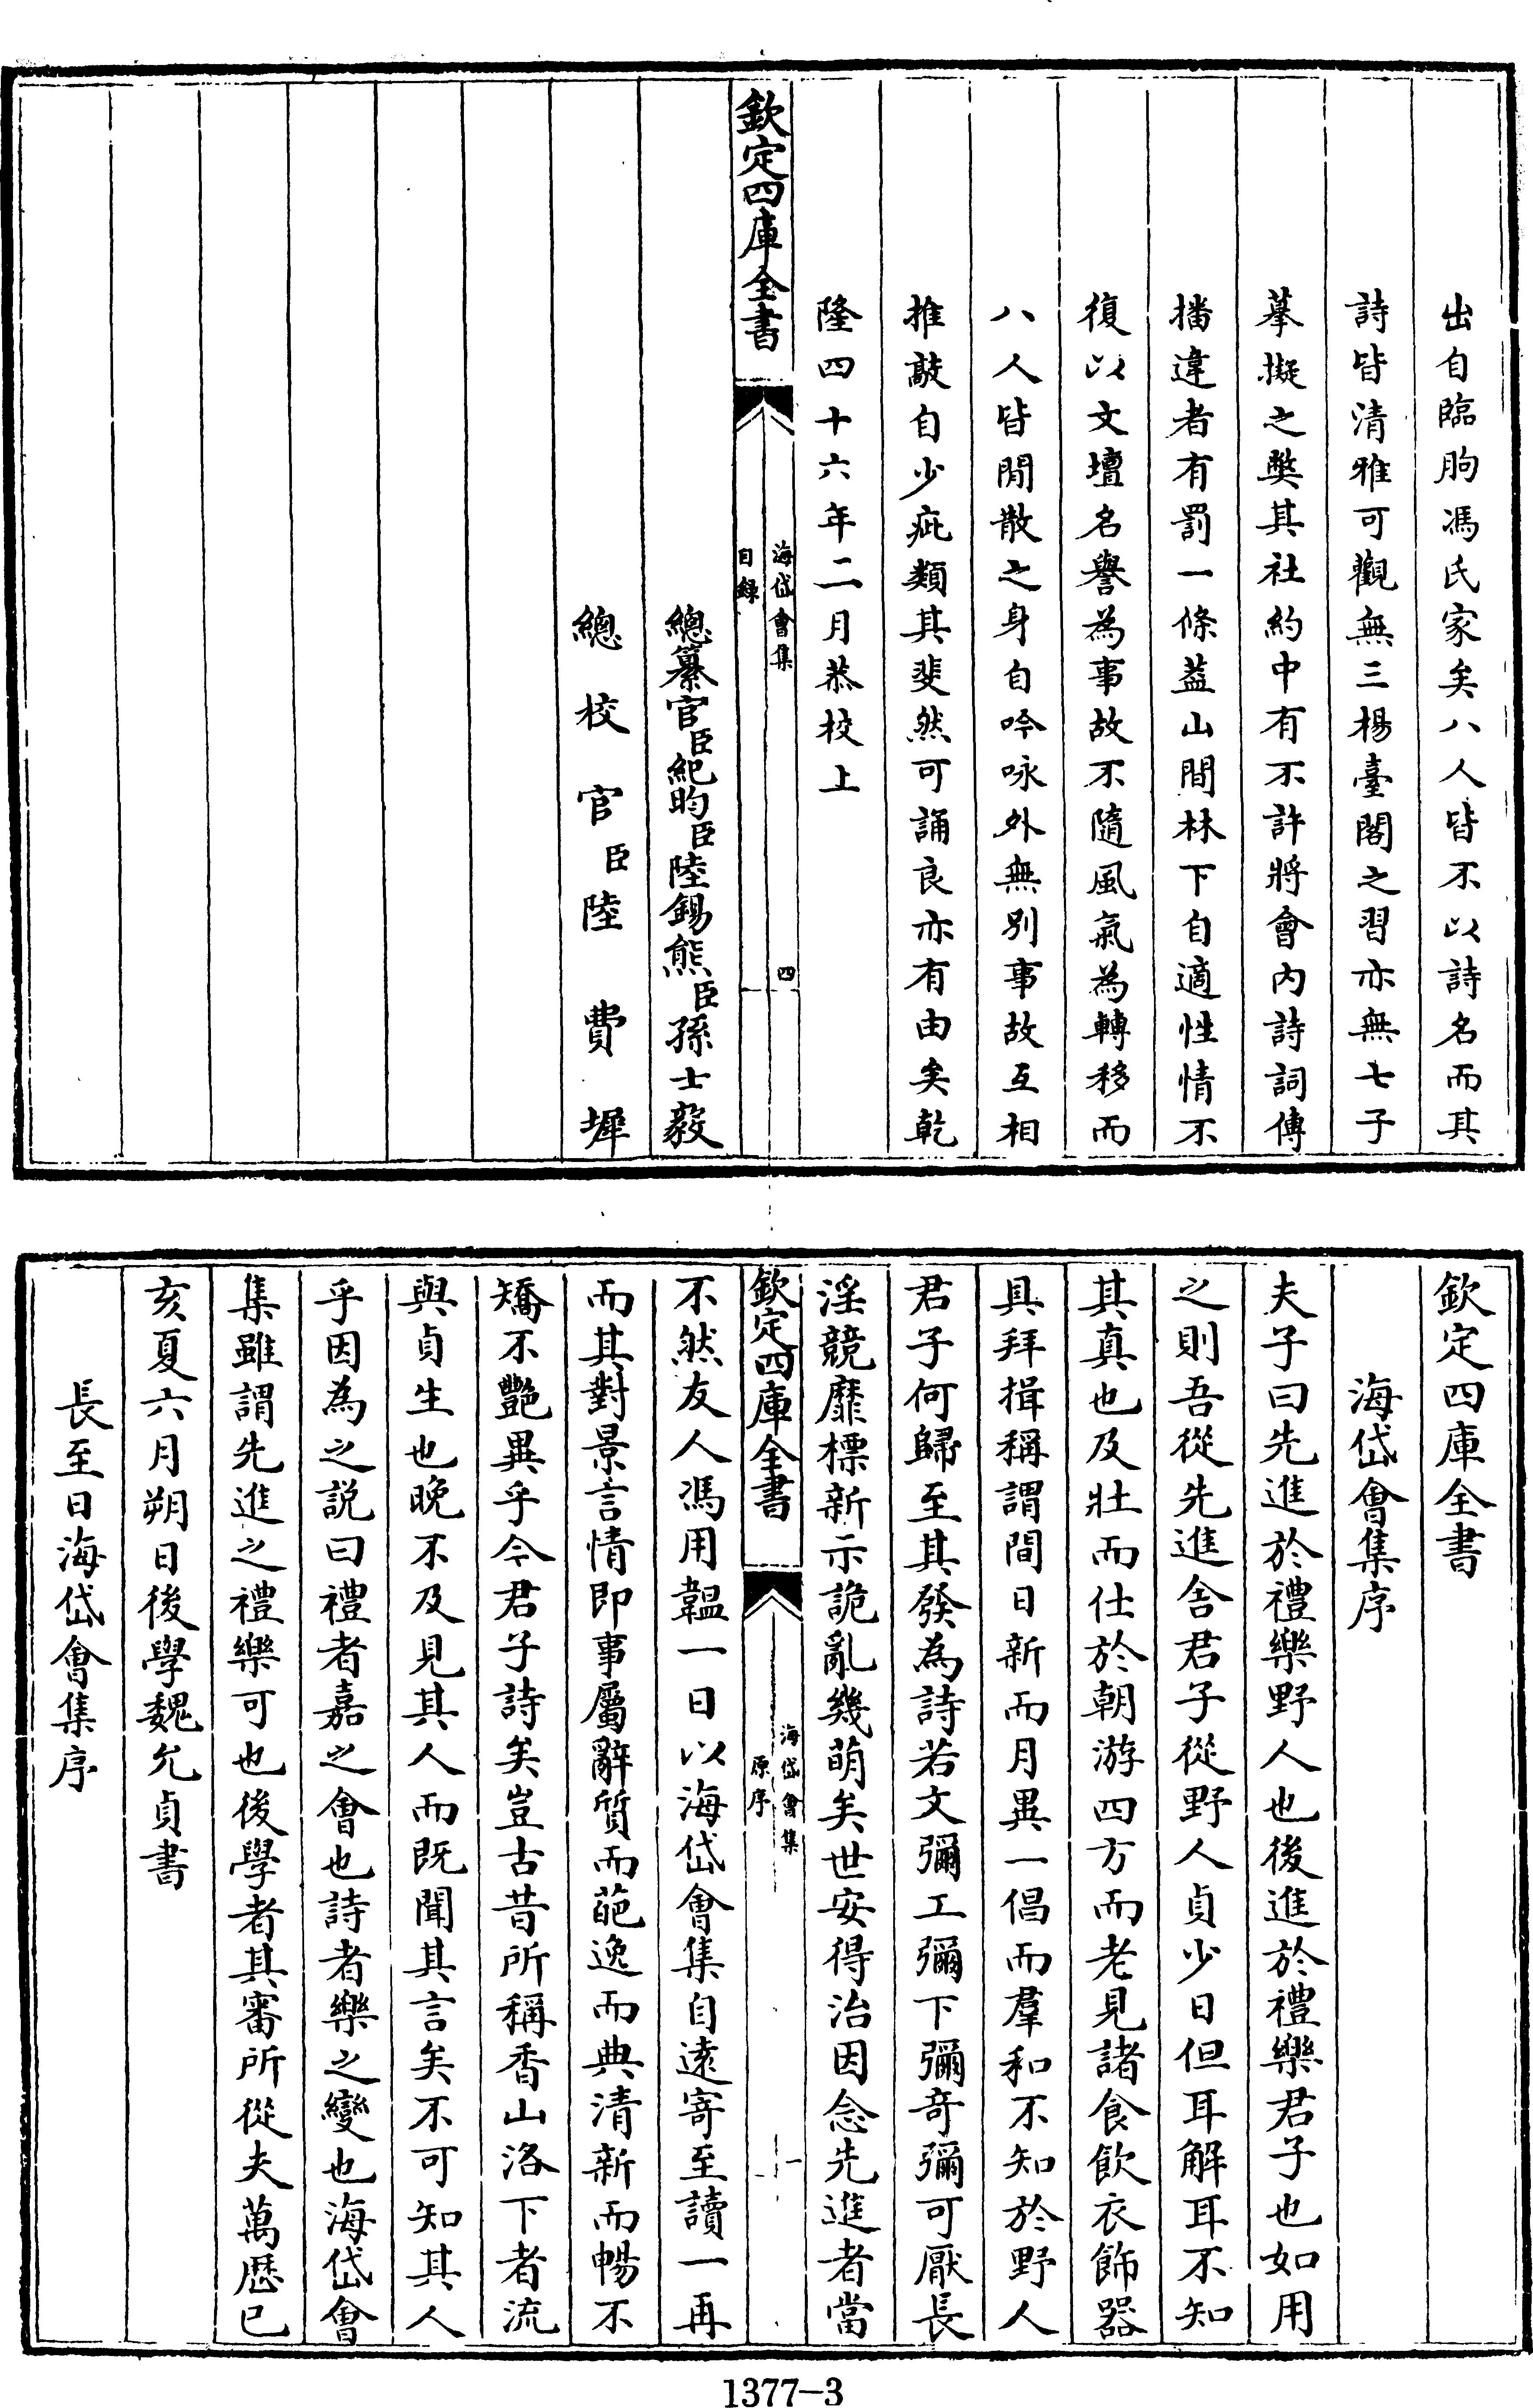 出自臨朐馮氏家矣八人皆不以詩名而其
詩皆清雅可觀無三楊臺閣之習亦無七子
摹擬之弊其社約中有不許將會內詩詞傳
播違者有罰一條葢山間林下自適性情不
復以文壇名譽為事故不隨風氣為轉移而
八人皆閒散之身自吟咏外無別事故互相
推敲自少疵纇其斐然可誦良亦有由矣乾
隆四十六年二月恭校上
欽定四庫全書
海岱會集
目録
四
總纂官臣紀昀臣陸錫熊臣孫士毅
總校官臣陸費墀
欽定四庫全書
海岱會集序
夫子曰先進於禮樂野人也後進於禮樂君子也如用
之則吾從先進舍君子從野人貞少日但耳解耳不知
其真也及壯而仕於朝游四方而老見諸食飲衣飾器
具拜揖稱謂間日新而月異一倡而羣和不知於野人
君子何歸至其發為詩若文彌工彌下彌竒彌可厭長
淫競靡標新示詭亂幾萌矣世安得治因念先進者當
欽定四庫全書
海岱會集
原序
一
不然友人馮用韞一日以海岱會集自遠寄至讀一再
而其對景言情即事屬辭質而葩逸而典清新而暢不
矯不艷異乎今君子詩矣豈古昔所稱香山洛下者流
與貞生也晚不及見其人而既聞其言矣不可知其人
乎因為之説曰禮者嘉之會也詩者樂之變也海岱會
集雖謂先進之禮樂可也後學者其審所從夫萬厯己
亥夏六月朔日後學魏允貞書
長至日海岱會集序
1377-3